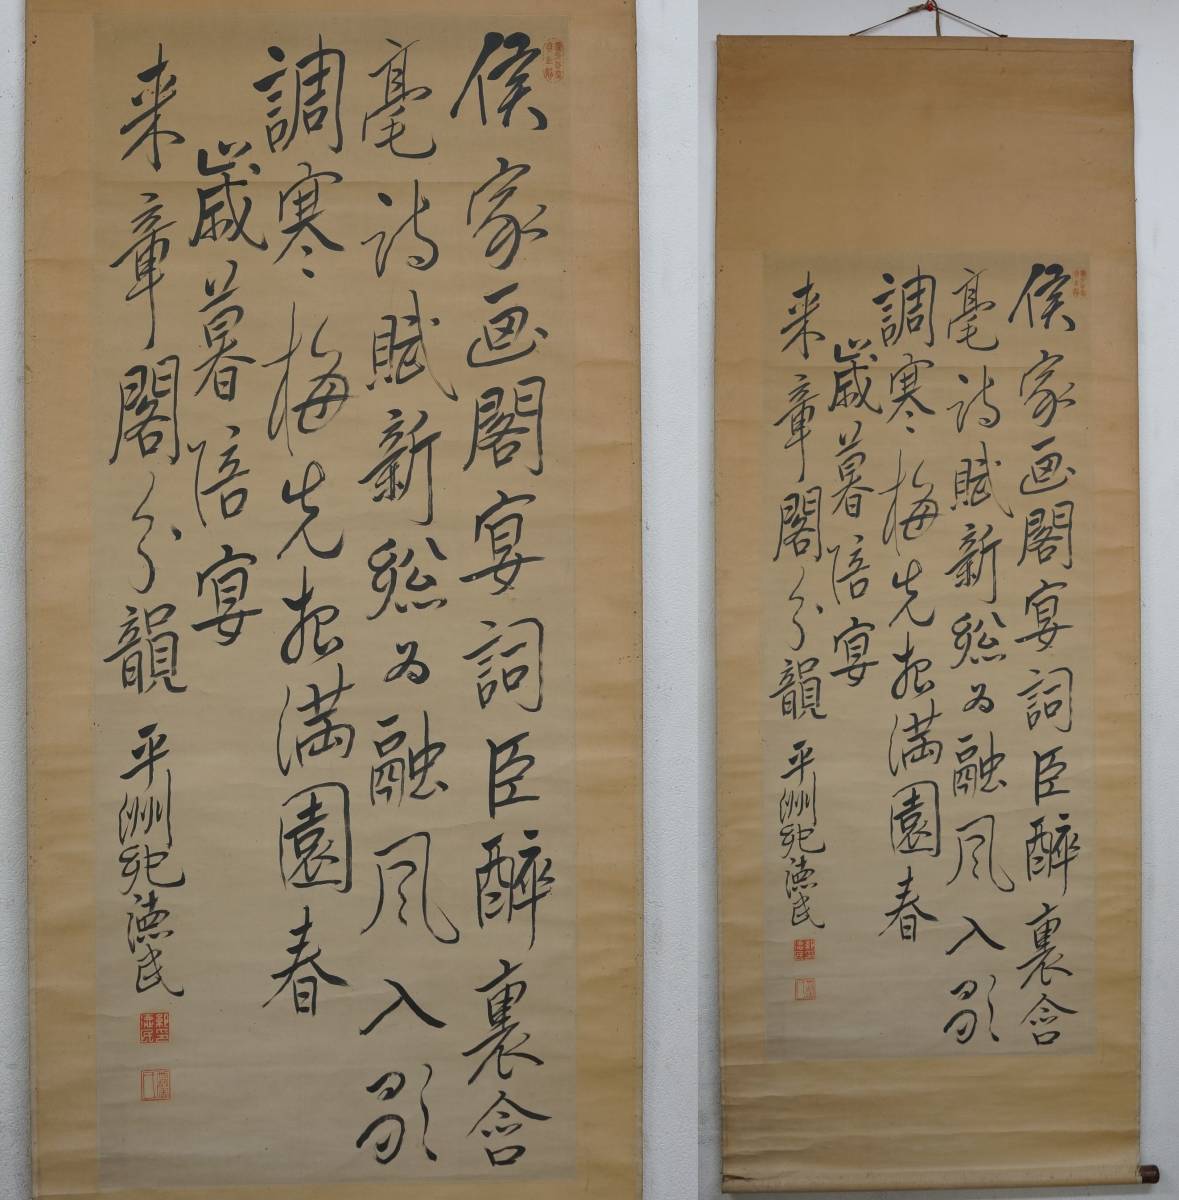 侯家画閣宴詞臣醉裏含
毫詩賦新総為融風入歌
調寒梅先報満園春
歳暮陪宴
来章閣分韻 平洲紀徳民
侯家画閣宴詞臣醉裏含
毫詩賦新総為融風入歌
調寒梅先報満園春
歳暮陪宴
来章閣分韻 平洲紀徳民